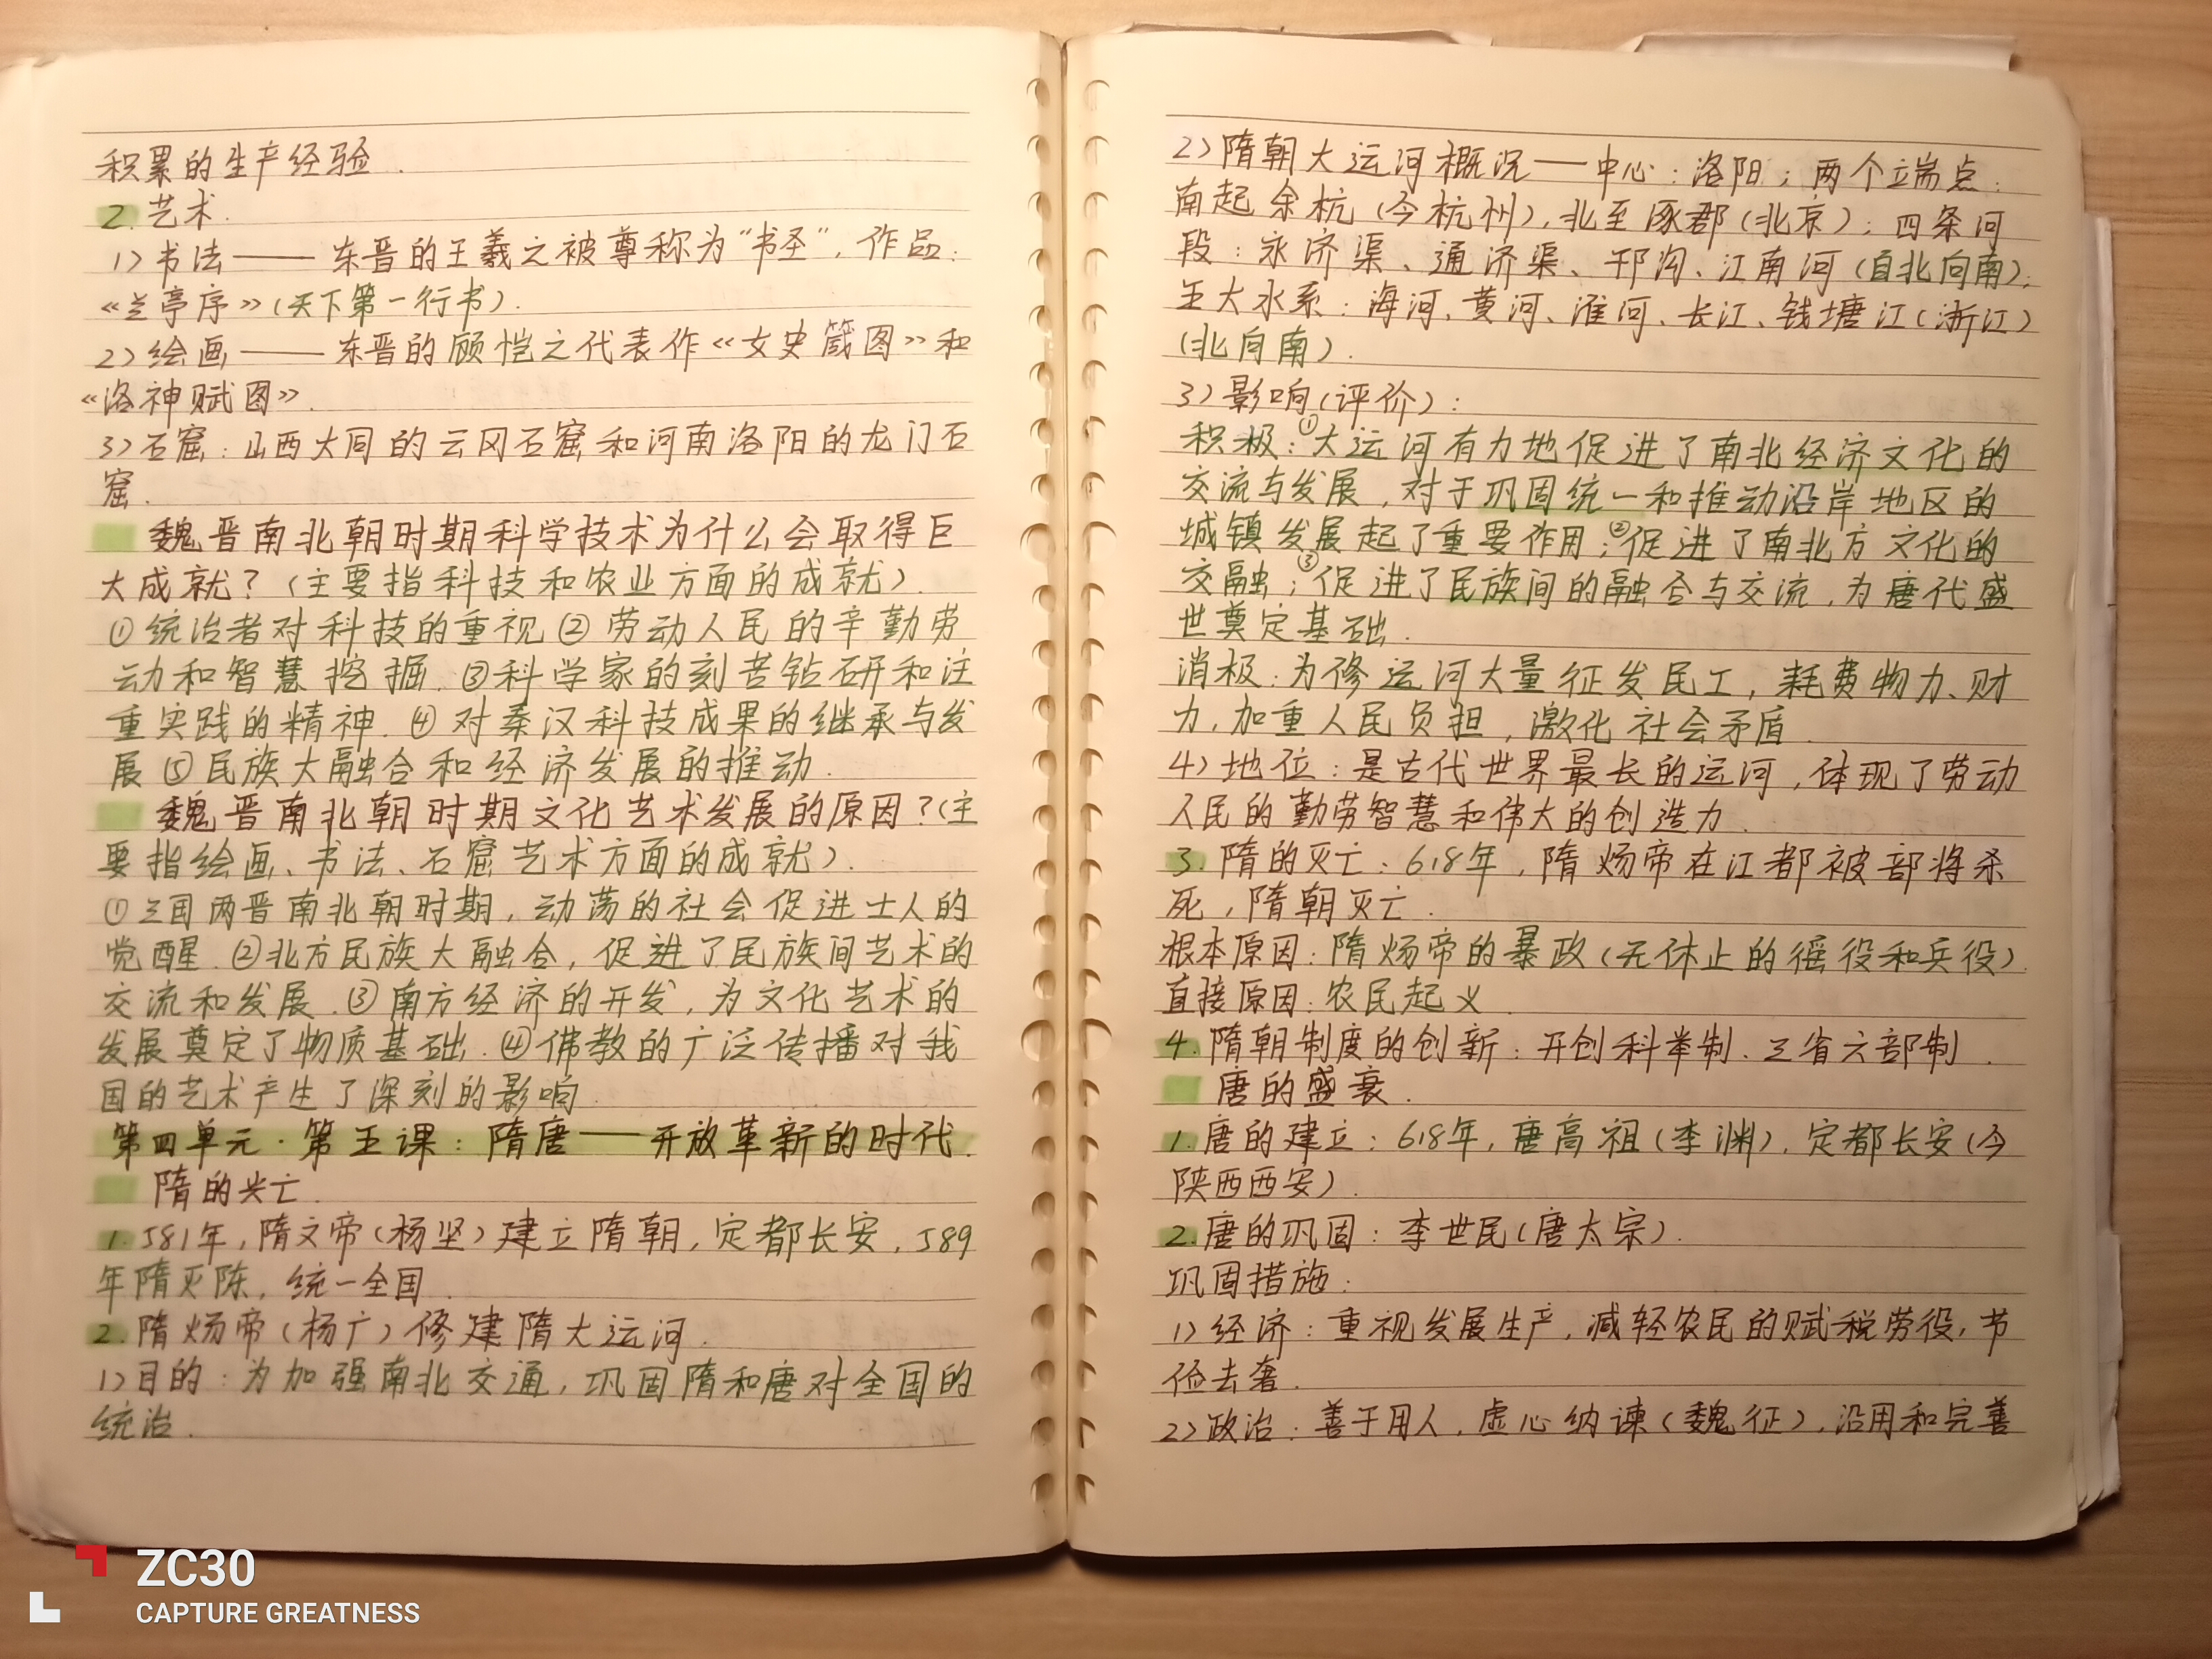 积累的生产经验.
2.艺术.
1)书法——东晋的王羲之被尊称为“书圣”,作品:
《兰亭序》(天下第一行书).
2)绘画——东晋的顾恺之代表作《女史箴图》和
《洛神赋图》.
3)石窟:山西大同的云冈石窟和河南洛阳的龙门石
窟.
魏晋南北朝时期科学技术为什么会取得巨
大成就?(主要指科技和农业方面的成就).
①统治者对科技的重视②劳动人民的辛勤劳
动和智慧挖掘.③科学家的刻苦钻研和注
重实践的精神.④对秦汉科技成果的继承与发
展⑤民族大融合和经济发展的推动.
魏晋南北朝时期文化艺术发展的原因?(主
要指绘画、书法、石窟艺术方面的成就).
①三国两晋南北朝时期,动荡的社会促进士人的
觉醒.②北方民族大融合,促进了民族间艺术的
交流和发展.③南方经济的开发,为文化艺术的
发展奠定了物质基础.④佛教的广泛传播对我
国的艺术产生了深刻的影响.
第四单元·第五课:隋唐——开放革新的时代.
隋的兴亡.
1.581年,隋文帝(杨坚)建立隋朝,定都长安,589
年隋灭陈,统一全国.
2.隋炀帝(杨广)修建隋大运河.
1)目的:为加强南北交通,巩固隋和唐对全国的
统治.
2)隋朝大运河概况——中心:洛阳;两个端点:
南起余杭(今杭州),北至涿郡(北京);四条河
段:永济渠、通济渠、邗沟、江南河(自北向南);
五大水系:海河、黄河、淮河、长江、钱塘江(浙江)
(北向南).
3)影响(评价):
积极:①大运河有力地促进了南北经济文化的
交流与发展,对于巩固统一和推动沿岸地区的
城镇发展起了重要作用;②促进了南北方文化的
交融;③促进了民族间的融合与交流,为唐代盛
世奠定基础.
消极:为修运河大量征发民工,耗费物力、财
力,加重人民负担,激化社会矛盾.
4)地位:是古代世界最长的运河,体现了劳动
人民的勤劳智慧和伟大的创造力.
3.隋的灭亡:618年,隋炀帝在江都被部将杀
死,隋朝灭亡.
根本原因:隋炀帝的暴政(无休止的徭役和兵役).
直接原因:农民起义.
4.隋朝制度的创新:开创科举制、三省六部制.
唐的盛衰.
1.唐的建立:618年,唐高祖(李渊),定都长安(今
陕西西安).
2.唐的巩固:李世民(唐太宗).
巩固措施:
1)经济:重视发展生产,减轻农民的赋税劳役,节
俭去奢.
2)政治:善于用人,虚心纳谏(魏征),沿用和完善
ZC30
CAPTURE GREATNESS